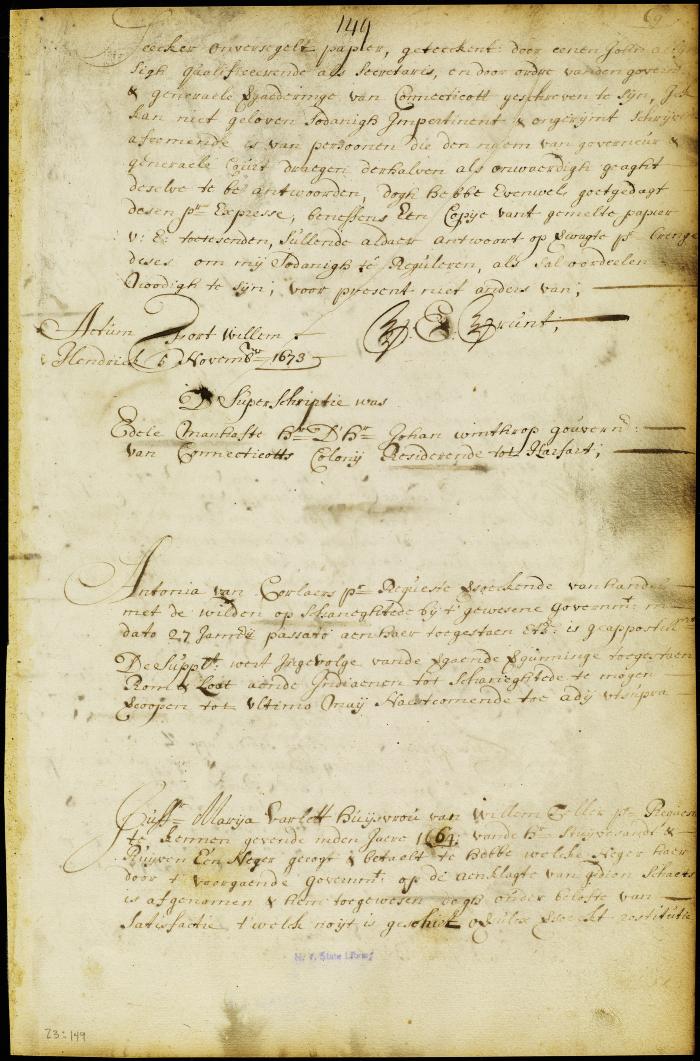 149
69
seecker onversegelt papier, geteeckent door eenen John
sigh qualificeerende als Secretaris, en door ordre vanden
& generaele vergaderinge van Connecticott geschreven te sijn, Ick
kan niet geloven Sodanigh Impertinent & ongerijmt
afcomende is van persoonen die den naem van governeur &
generaele Court draegen derhalven als onwaerdigh geaght
deselve te beantwoorden, dogh hebbe Evenwel goetgedagt
desen pr Expresse, beneffens Een Copije vant gemelte papier
v: E: toetesenden, sullende aldaer antwoort op verwagte pr brenger
deses om mij Sodanigh te Reguleren, als sal oordeelen
Noodigh te sijn; voor present niet anders van;
Actum Fort willem
Hendrick 5 Novembr 1673
D' Superschriptie was
Edele Manhafte hr Dhr Johan winthrop gouvernr:
van Connecticotts Colonij Residerende tot Harfart;
Antonia van Corlaers pr Requeste versoeckende van handel
met de wilden op Schaneghtede bij t' gewesene Governmt:
dato 27 passato aen haer toegestaen Etc: is geappostilt
De Supplt. wert Ingevolge vande vergaende vergunninge toegestaen
Rom & Loot aende Indiaenen tot Schaneghtede te mogen
vercoopen tot ultimo Maij Naestcomende toe adij utsupra
Juffr Marija Varlett Huijsvrou van Willem Teller pr Request
te kennen gevende inden Jaere 1664 vande hr Stuijvesandt &
Ruijven Een Neger gecogt & betaelt te hebbe welcke Neger haer
door t' voorgaende governmt: op de aenklagte van gidion Schaets
is afgenomen & hem toegewesen dogh onder belofte van
Satisfactie t'welck noijt is geschiet versoeckt restitutie
N. Y. State Library
23:149